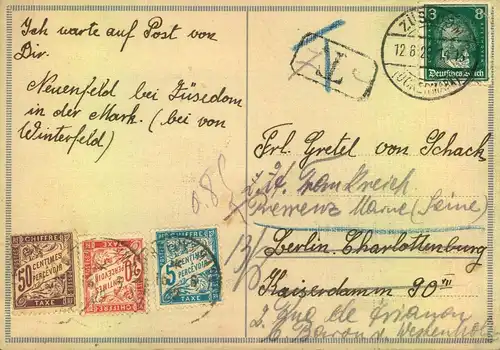 Ich warte auf Post von
Dir.
Neuenfeld bei Züsedom
in der Mark. (bei von
Winterfeld)
T
12.8.2
8 8
Deutsches Reich
Frl. Gretel von Schack
Frankreich
Marne (Seine)
Berlin-Charlottenburg
Kaiserdamm 90 III
2 Rue de Trianon
Baron v.
0.85
CHIFFRE
50 CENTIMES
À PERCEVOIR
TAXE
CHIFFRE
30 CENTIMES
À PERCEVOIR
TAXE
CHIFFRE
5 CENTIMES
À PERCEVOIR
TAXE